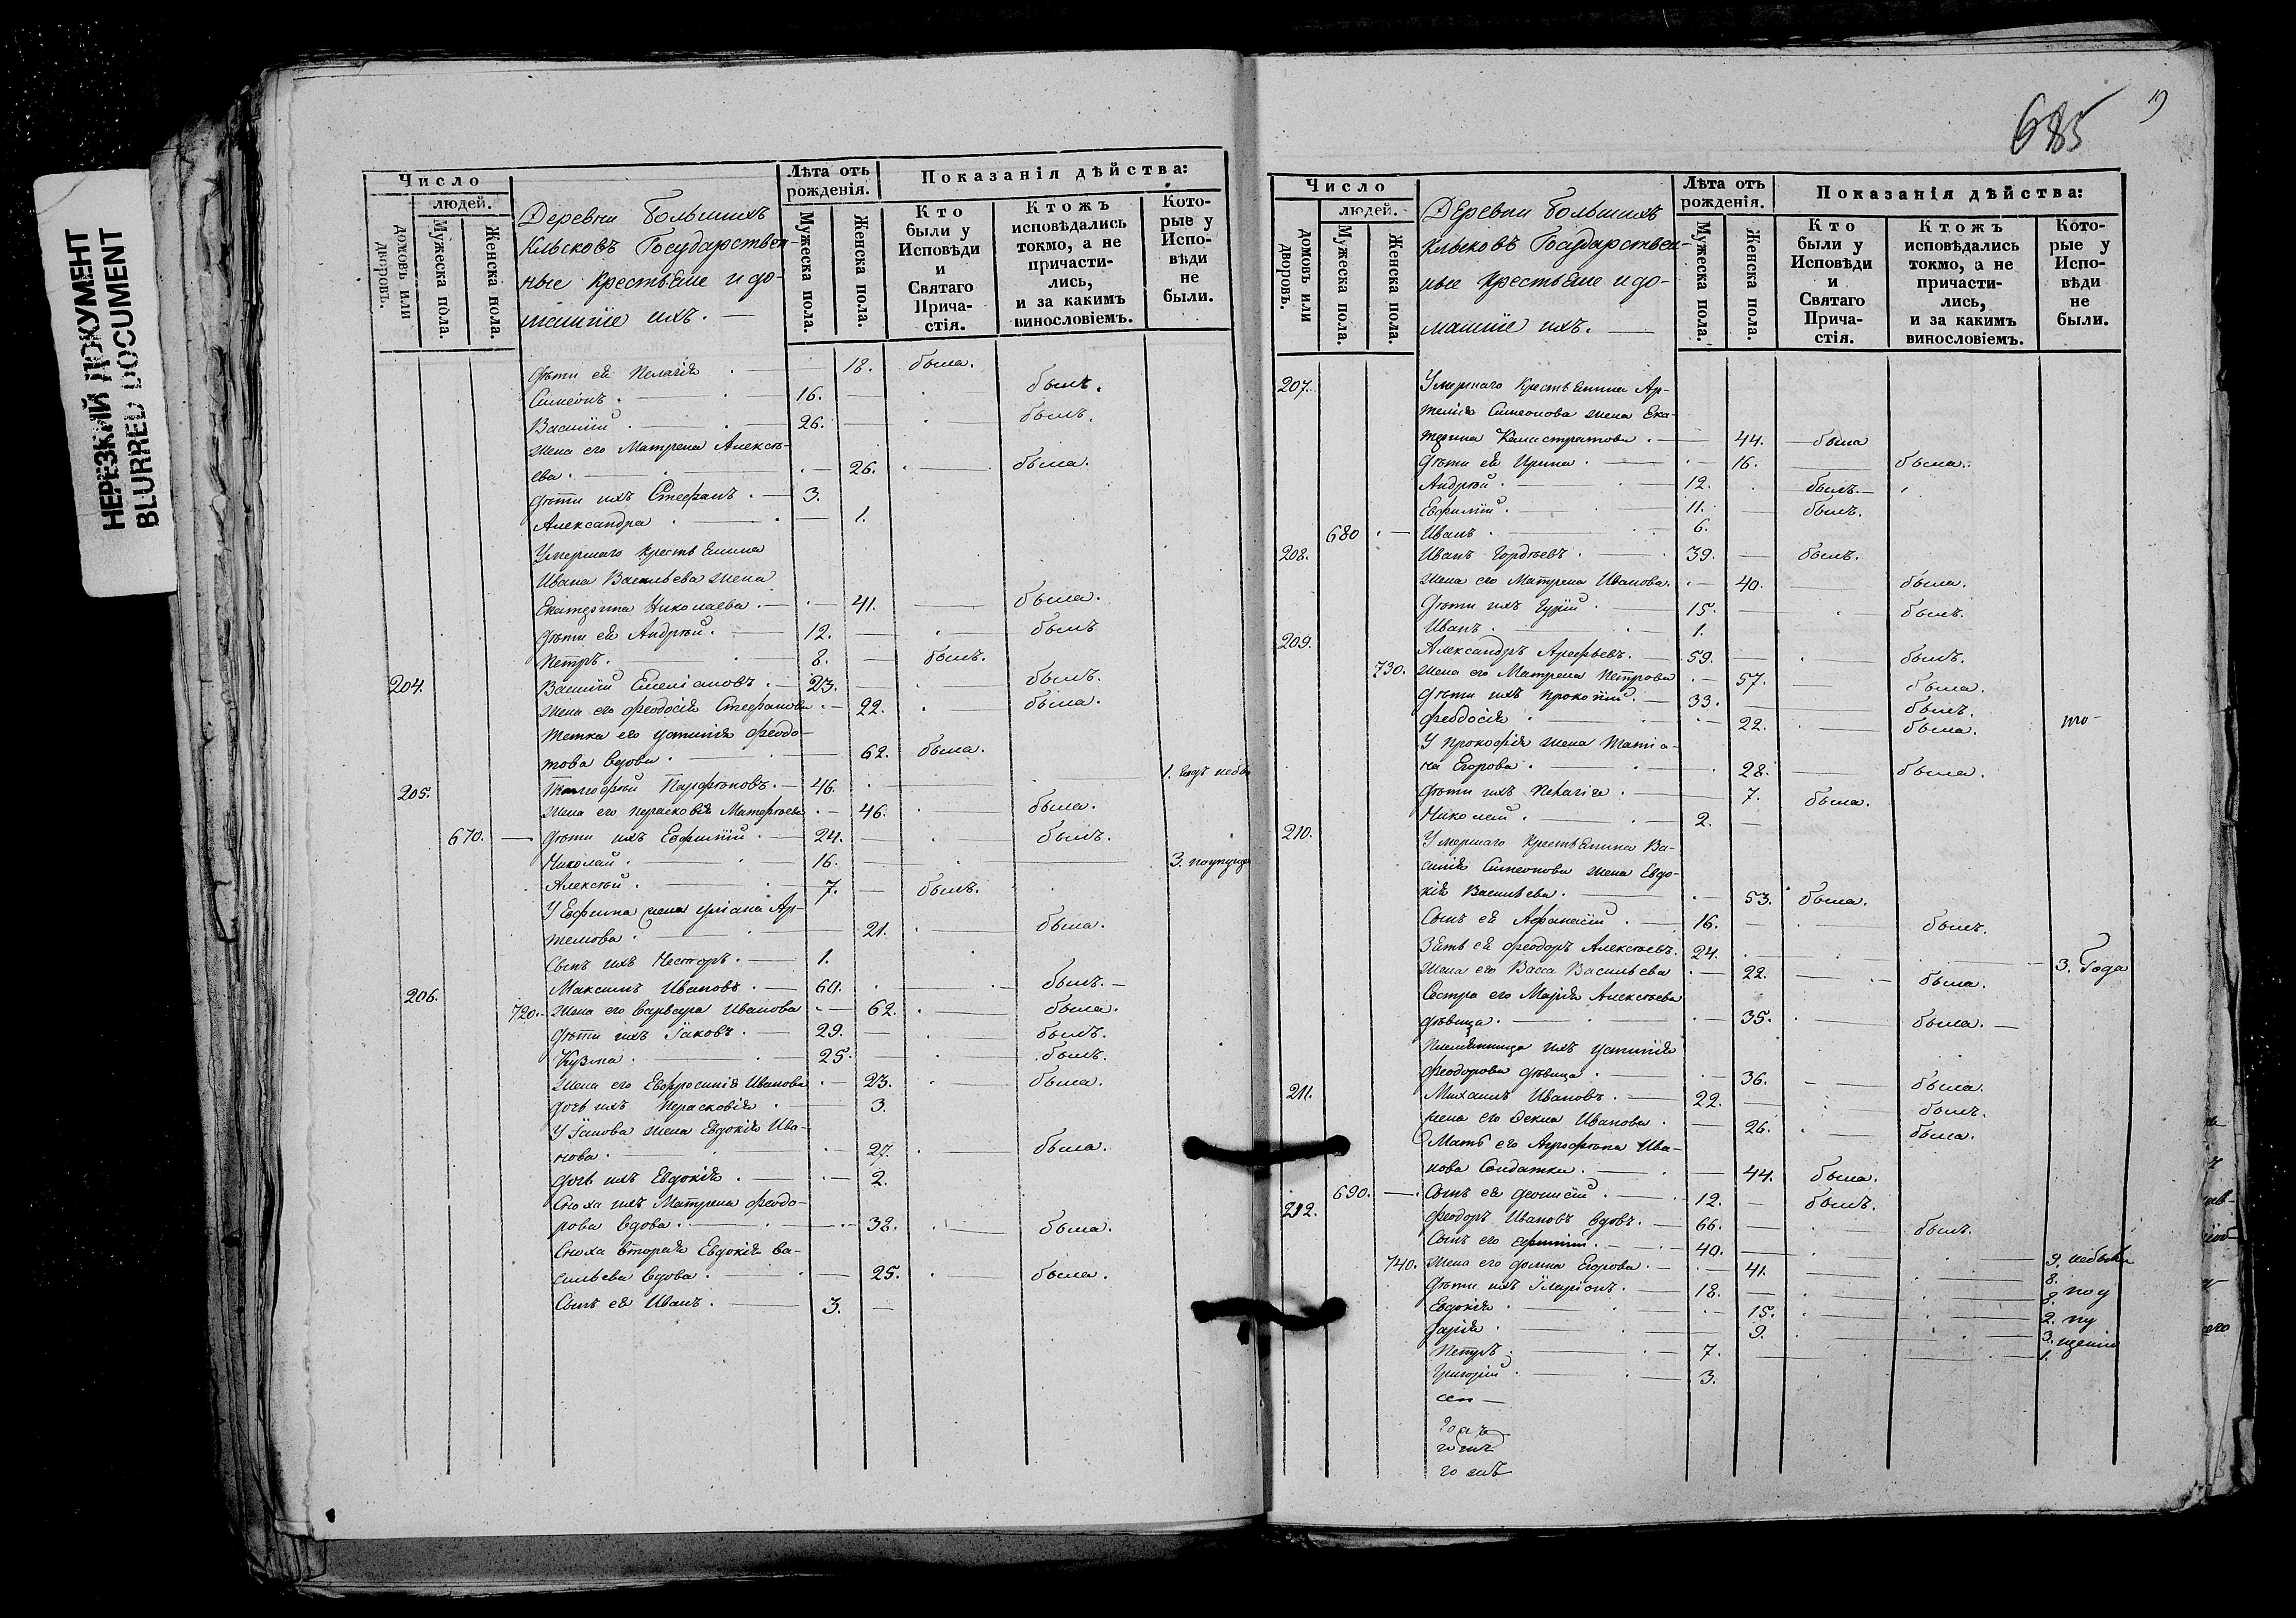 НЕРЕЗКИЙ ДОКУМЕНТ
BLURRED DOCUMENT
Число
людей.
домовъ или дворовъ.
Мужеска пола.
Женска пола.
Деревни Большихъ
Клыковъ Государствен-
ные Крестьяне и до-
машніе ихъ. —
Лѣта отъ рожденія.
Мужеска пола.
Женска пола.
Показанія дѣйства:
Кто были у Исповѣди и Святаго Прича-стія.
Ктожъ исповѣдались токмо, а не причасти-лись, и за какимъ винословіемъ.
Кото-рые у Испо-вѣди не были.
Дѣти ея Пелагія . — 18. была.
Симеонъ . — 16. — былъ.
Василій . — 26. — былъ.
Жена его Матрена Алексѣ-
ева . — 26. — была.
Дѣти ихъ Стефанъ . — 3.
Александра . — 1.
Умершаго Крестьянина
Ивана Васильева жена
Екатерина Николаева . — 41. — была.
Дѣти ея Андрей . — 12. — былъ
Петръ . — 8. — былъ.
204. Василій Емеліановъ . — 23. — былъ.
Жена его Феодосія Стефанова . — 22. — была.
Тетка его Устинія Федо-
това вдова . — 62. была.
205. Парфеновъ . — 46. 1. годъ
Жена его Перасковія Матфеева . — 46. — была.
670. — Дѣти ихъ Евфимій . — 24. — былъ.
Николай . — 16. — 3.
Алексѣй . — 7. — былъ.
У Евфима жена Уліана Ар-
темова . — 21. — была.
Сынъ ихъ Несторъ . — 1.
206. Максимъ Ивановъ . — 60. — былъ. —
720. — Жена его Варвара Иванова . — 62. — была.
Дѣти ихъ Іаковъ . — 29. — былъ.
Кузма . — 25. — былъ.
Жена его Евфросинія Иванова . — 23. — была.
Дочь ихъ Перасковія . — 3.
У Іакова жена Евдокія Ива-
нова . — 27. — была.
Дочь ихъ Евдокія . — 2.
Сноха ихъ Матрена Феодо-
рова вдова . — 38. — была.
Сноха вторая Евдокія Ва-
сильева вдова . — 25. — была.
Сынъ ея Иванъ . — 3. —
685
Число
людей.
домовъ или дворовъ.
Мужеска пола.
Женска пола.
Деревни Большихъ
Клыковъ Государствен-
ные Крестьяне и до-
машніе ихъ. —
Лѣта отъ рожденія.
Мужеска пола.
Женска пола.
Показанія дѣйства:
Кто были у Исповѣди и Святаго Прича-стія.
Ктожъ исповѣдались токмо, а не причасти-лись, и за какимъ винословіемъ.
Кото-рые у Испо-вѣди не были.
207. Умершаго Крестьянина Ар-
темія Симеонова жена Ека-
терина Калистратова . — 44. — была
Дѣти ея Ирина . — 16. — была.
Андрей . — 12. былъ. —
Евфимій . — 11. — былъ.
680 . — Иванъ . — 6.
208. Иванъ Гордѣевъ . — 39. — былъ.
Жена его Матрена Иванова . — 40. — была.
Дѣти ихъ Гурій . — 15. — былъ.
Иванъ . — 1.
209. Александръ Арефьевъ . — 59. — былъ.
730. Жена его Матрена Петрова . — 57. — была.
Дѣти ихъ Прокопій . — 33. — былъ.
Феодосія . — 22. — была.
У Прокофія жена Татіа-
на Егорова . — 28. — была.
Дѣти ихъ Пелагія . — 7. была.
Николай . — 2. —
210. Умершаго Крестьянина Ва-
силія Симеонова жена Евдо-
кія Васильева . — 53. была.
Сынъ ея Афанасій . — 16. — былъ.
Зять ея Феодоръ Алексѣевъ. 24. — 3. Года
Жена его Васса Васильева . — 22. — была.
Сестра его Марія Алексѣева
дѣвица . — 35. — была. —
Племянница ихъ Устинія
Феодорова дѣвица . — 36. — была.
211. Михаилъ Ивановъ . — 22. — былъ.
Жена его Фекла Иванова . — 26. — была.
Мать его Агрофена Ива-
нова Солдатка . — 44. была.
690. — Сынъ ея Діонисій . — 12. — былъ.
212. Феодоръ Ивановъ вдовъ . — 66. — былъ.
Сынъ его . — 40. — 9.
740. Жена его Домна Егорова . — 41. — 8.
Дѣти ихъ Иларіонъ . — 18. — 8. по у
Евдокія . — 15. — 2. пу
Дарія . — 9. — 3. щенію
Петръ . — 7. — 1.
Григорій . — 3.